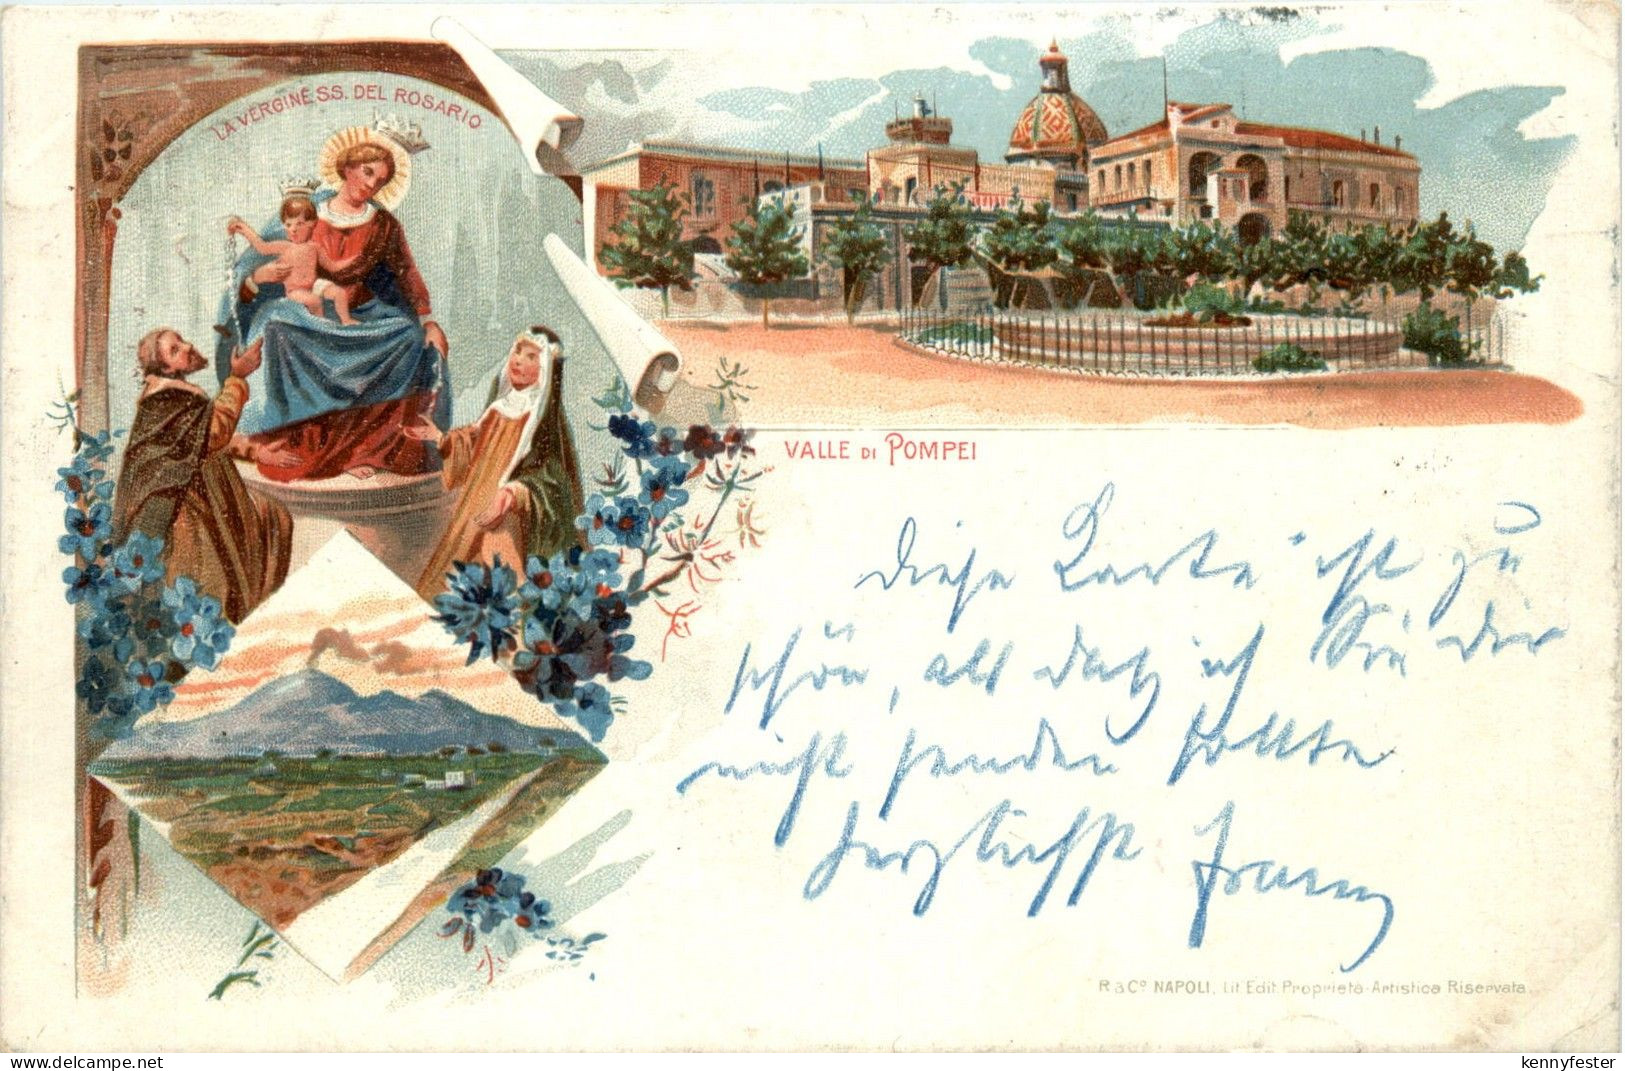 LA VERGINE SS. DEL ROSARIO
VALLE DI POMPEI
Diese Karte ist zu
schön, als daß ich Sie Dir
nicht senden sollte
Herzlichst
R & Cº NAPOLI, Lit. Edit. Proprietà Artistica Riservata.
www.delcampe.net
kennyfester